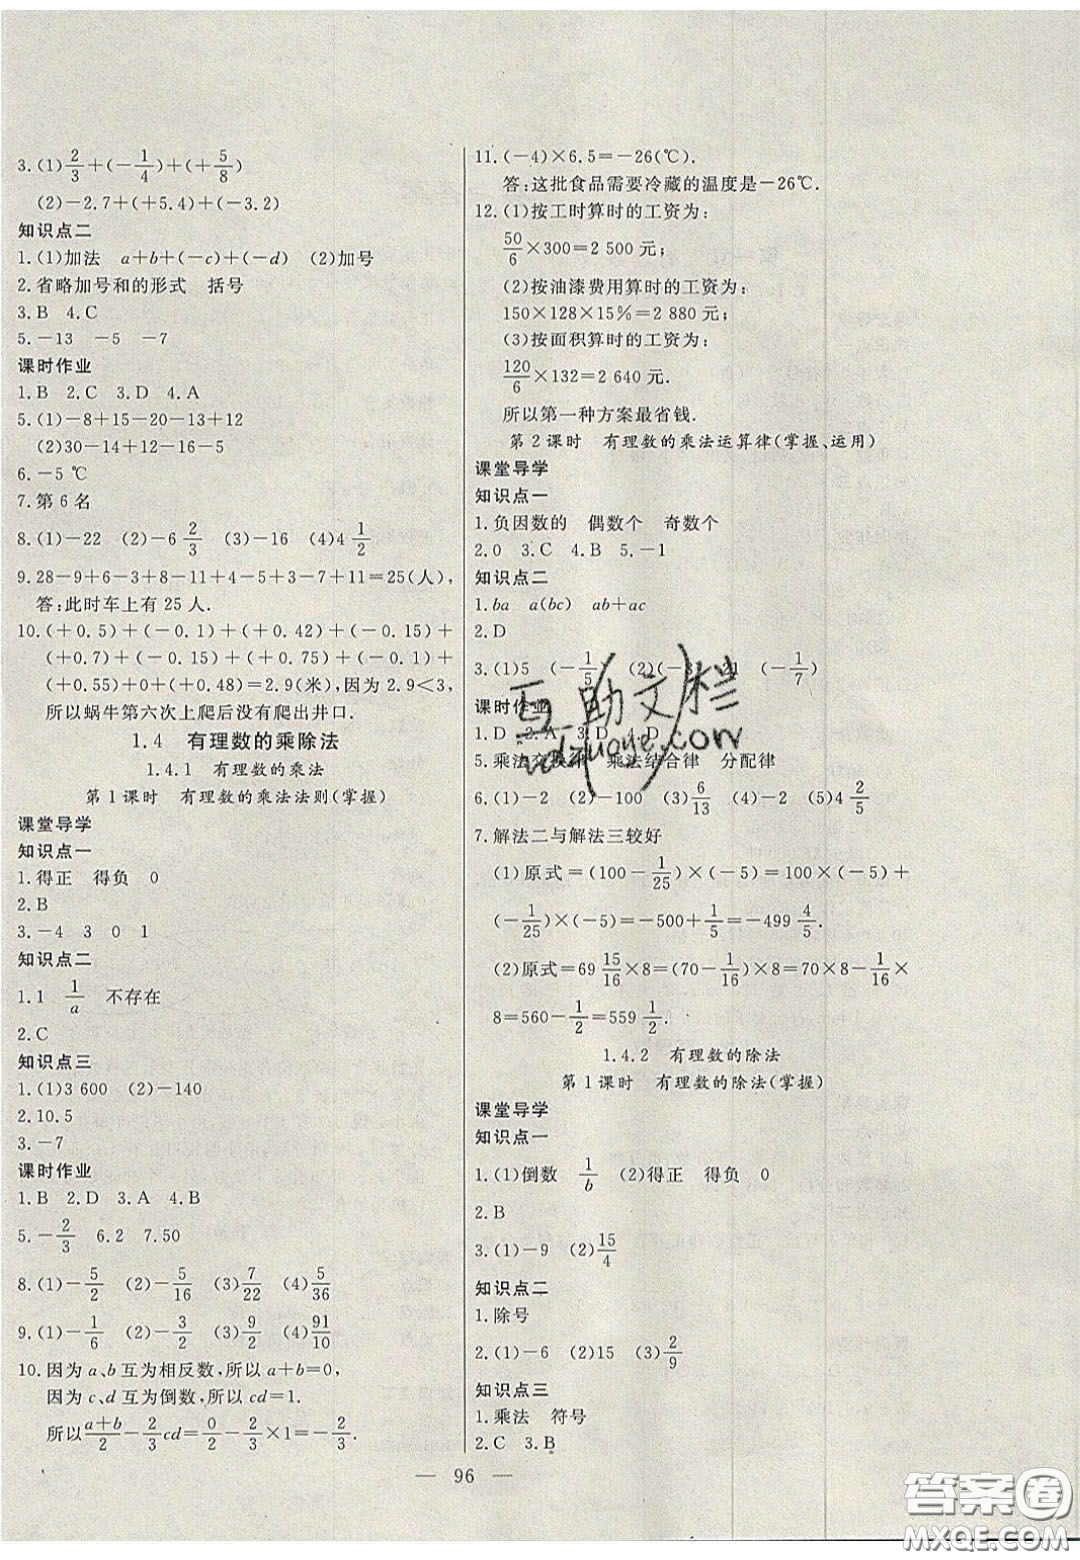 3.(1)2/3+(-1/4)+(+5/8)
(2)-2.7+(+5.4)+(-3.2)
知识点二
1.(1)加法 a+b+(-c)+(-d) (2)加号
2.省略加号和的形式 括号
3.B 4.C
5.-13 -5 -7
课时作业
1.B 2.C 3.D 4.A
5.(1)-8+15-20-13+12
(2)30-14+12-16-5
6.-5 ℃
7.第 6 名
8.(1)-22 (2)-6 2/3 (3)-16 (4)4 1/2
9.28-9+6-3+8-11+4-5+3-7+11=25(人),
答:此时车上有 25 人.
10.(+0.5)+(-0.1)+(+0.42)+(-0.15)+
(+0.7)+(-0.15)+(+0.75)+(-0.1)+
(+0.55)+0+(+0.48)=2.9(米),因为 2.9<3,
所以蜗牛第六次上爬后没有爬出井口.
1.4 有理数的乘除法
1.4.1 有理数的乘法
第1课时 有理数的乘法法则(掌握)
课堂导学
知识点一
1.得正 得负 0
2.B
3.-4 3 0 1
知识点二
1.1 1/a 不存在
2.C
知识点三
1.(1)3 600 (2)-140
2.10.5
3.-7
课时作业
1.B 2.D 3.A 4.B
5.-2/3 6.2 7.50
8.(1)-5/2 (2)-5/16 (3)7/22 (4)5/36
9.(1)-1/6 (2)-3/2 (3)9/2 (4)91/10
10.因为 a、b 互为相反数,所以 a+b=0,
因为 c、d 互为倒数,所以 cd=1.
所以(a+b)/2-2/3cd=0/2-2/3×1=-2/3.
11.(-4)×6.5=-26(℃).
答:这批食品需要冷藏的温度是-26℃.
12.(1)按工时算时的工资为:
50/6×300=2 500 元;
(2)按油漆费用算时的工资为:
150×128×15%=2 880 元;
(3)按面积算时的工资为:
120/6×132=2 640 元.
所以第一种方案最省钱.
第2课时 有理数的乘法运算律(掌握、运用)
课堂导学
知识点一
1.负因数的 偶数个 奇数个
2.0 3.C 4.B 5.-1
知识点二
1.ba a(bc) ab+ac
2.D
3.(1)5 (-1/5) (2)(-3) 21 (-1/7)
课时作业
1.D 2.A 3.D
5.乘法交换律 乘法结合律 分配律
6.(1)-2 (2)-100 (3)6/13 (4)-2 (5)4 2/5
7.解法二与解法三较好
(1)原式=(100-1/25)×(-5)=100×(-5)+
(-1/25)×(-5)=-500+1/5=-499 4/5.
(2)原式=69 15/16×8=(70-1/16)×8=70×8-1/16×
8=560-1/2=559 1/2.
1.4.2 有理数的除法
第1课时 有理数的除法(掌握)
课堂导学
知识点一
1.(1)倒数 1/b (2)得正 得负 0
2.B
3.(1)-9 (2)15/4
知识点二
1.除号
2.(1)-6 (2)15 (3)2/9
知识点三
1.乘法 符号
2.C 3.B
— 96 —
互助文栏
答案圈
MXQE.COM